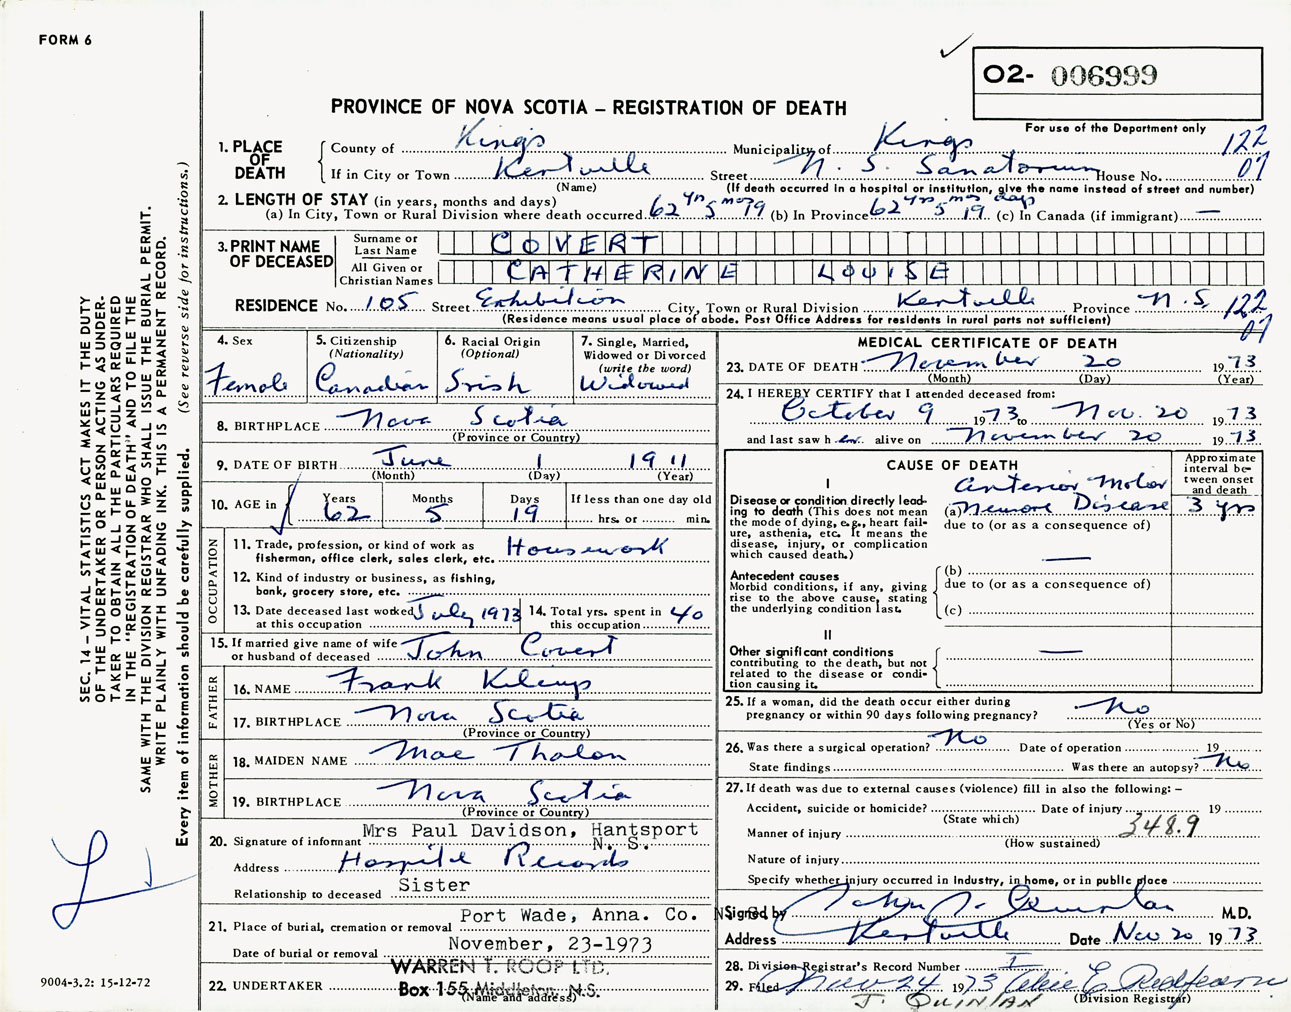 FORM 6
O2- 006999
PROVINCE OF NOVA SCOTIA – REGISTRATION OF DEATH
For use of the Department only
1. PLACE OF DEATH
County of Kings Municipality of Kings 122
If in City or Town Kentville Street N. S. Sanatorium House No. 07
(Name) (If death occurred in a hospital or institution, give the name instead of street and number)
2. LENGTH OF STAY (in years, months and days)
(a) In City, Town or Rural Division where death occurred 62 yrs 5 mos 19 (b) In Province 62 yrs 5 mos 19 days (c) In Canada (if immigrant) —
3. PRINT NAME OF DECEASED
Surname or Last Name COVERT
All Given or Christian Names CATHERINE LOUISE
RESIDENCE No. 105 Street Exhibition City, Town or Rural Division Kentville Province N.S. 122
(Residence means usual place of abode. Post Office Address for residents in rural parts not sufficient) 07
4. Sex Female
5. Citizenship (Nationality) Canadian
6. Racial Origin (Optional) Irish
7. Single, Married, Widowed or Divorced (write the word) Widowed
8. BIRTHPLACE Nova Scotia
(Province or Country)
9. DATE OF BIRTH June 1 1911
(Month) (Day) (Year)
10. AGE in Years 62 Months 5 Days 19 If less than one day old
hrs. or min.
OCCUPATION
11. Trade, profession, or kind of work as fisherman, office clerk, sales clerk, etc. Housework
12. Kind of industry or business, as fishing, bank, grocery store, etc.
13. Date deceased last worked at this occupation July 1973
14. Total yrs. spent in this occupation 40
15. If married give name of wife or husband of deceased John Covert
FATHER
16. NAME Frank
17. BIRTHPLACE Nova Scotia
(Province or Country)
MOTHER
18. MAIDEN NAME Mae Thalon
19. BIRTHPLACE Nova Scotia
(Province or Country)
20. Signature of informant Mrs Paul Davidson, Hantsport N. S.
Address Hospital Records
Relationship to deceased Sister
21. Place of burial, cremation or removal Port Wade, Anna. Co. N.S.
Date of burial or removal November, 23-1973
22. UNDERTAKER WARREN T. ROOP LTD.
Box 155 Middleton, N.S.
(Name and address)
MEDICAL CERTIFICATE OF DEATH
23. DATE OF DEATH November 20 1973
(Month) (Day) (Year)
24. I HEREBY CERTIFY that I attended deceased from:
October 9 1973 to Nov. 20 1973
and last saw her alive on November 20 1973
CAUSE OF DEATH
Approximate interval between onset and death
I
Disease or condition directly leading to death (This does not mean the mode of dying, e.g., heart failure, asthenia, etc. It means the disease, injury, or complication which caused death.)
Anterior Motor
(a) Neurone Disease 3 yrs
due to (or as a consequence of)
Antecedent causes
Morbid conditions, if any, giving rise to the above cause, stating the underlying condition last.
(b) —
due to (or as a consequence of)
(c)
II
Other significant conditions contributing to the death, but not related to the disease or condition causing it. —
25. If a woman, did the death occur either during pregnancy or within 90 days following pregnancy? No
(Yes or No)
26. Was there a surgical operation? No Date of operation 19
State findings Was there an autopsy? No
27. If death was due to external causes (violence) fill in also the following: –
Accident, suicide or homicide? Date of injury 19
(State which) 348.9
Manner of injury
(How sustained)
Nature of injury
Specify whether injury occurred in Industry, in home, or in public place
Signed by M.D.
Address Kentville Date Nov 20 1973
28. Division Registrar's Record Number
29. Filed Nov 24 1973
(Division Registrar)
J. QUINLAN
SEC. 14 – VITAL STATISTICS ACT MAKES IT THE DUTY
OF THE UNDERTAKER OR PERSON ACTING AS UNDER-
TAKER TO OBTAIN ALL THE PARTICULARS REQUIRED
IN THE "REGISTRATION OF DEATH" AND TO FILE THE
SAME WITH THE DIVISION REGISTRAR WHO SHALL ISSUE THE BURIAL PERMIT.
WRITE PLAINLY WITH UNFADING INK. THIS IS A PERMANENT RECORD.
Every item of information should be carefully supplied. (See reverse side for instructions.)
9004-3.2: 15-12-72